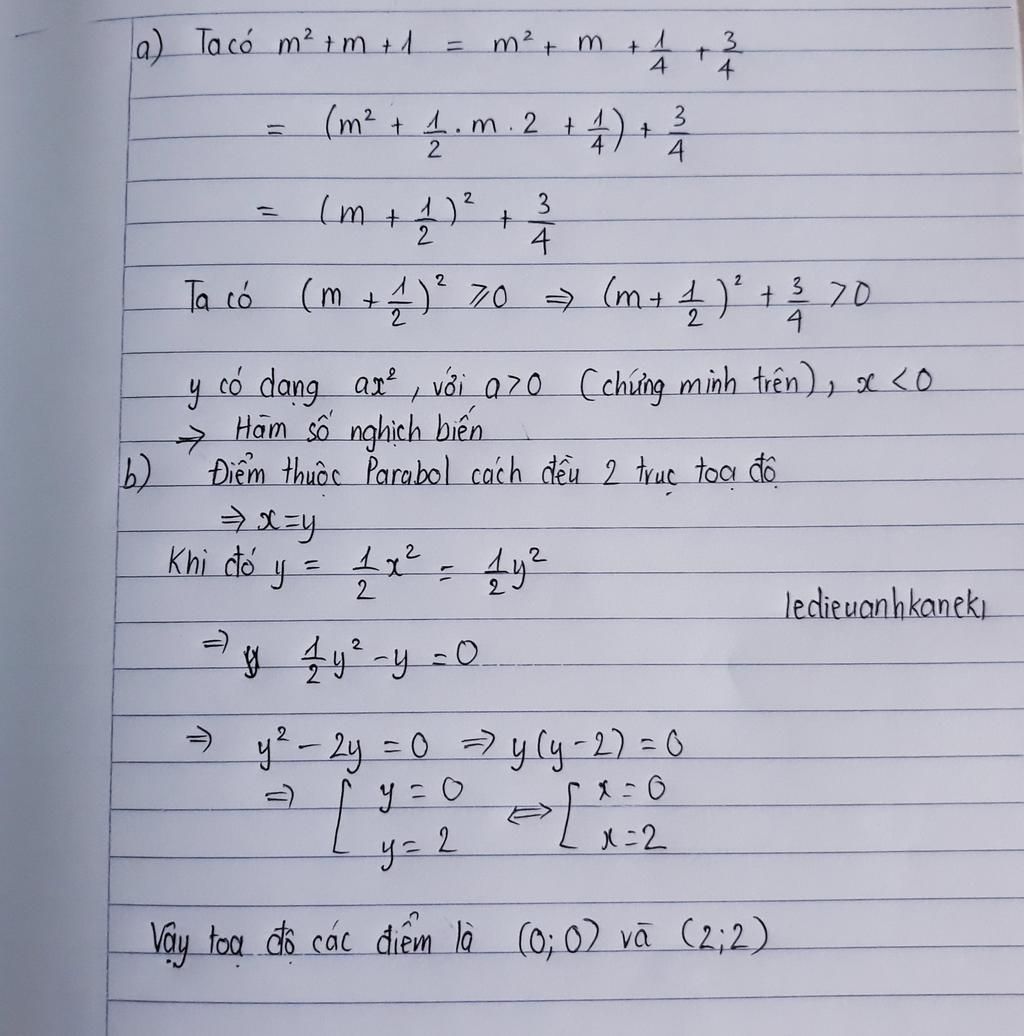 a) Ta có m² + m + 1 = m² + m + 1/4 + 3/4
= (m² + 1/2 . m . 2 + 1/4) + 3/4
= (m + 1/2)² + 3/4
Ta có (m + 1/2)² ⩾ 0 ⇒ (m + 1/2)² + 3/4 > 0
y có dạng ax², với a > 0 (chứng minh trên), x < 0
⇒ Hàm số nghịch biến
b) Điểm thuộc Parabol cách đều 2 trục toạ độ
⇒ x = y
Khi đó y = 1/2 x² = 1/2 y²
ledieuanhkaneki
⇒ 1/2 y² - y = 0
⇒ y² - 2y = 0 ⇒ y(y - 2) = 0
⇒ [ y = 0 ⇔ [ x = 0
y = 2 x = 2
Vậy toạ độ các điểm là (0; 0) và (2; 2)